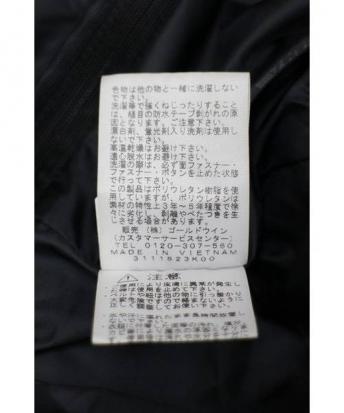 色物は他の物と一緒に洗濯しない
で下さい。
洗濯等で強くねじったりすること
は、縫目の防水テープ剥がれの原
因となります。ご注意下さい。
漂白剤、蛍光剤入り洗剤は使用し
ないで下さい。
高温乾燥はお避け下さい。
遠心脱水はお避け下さい。
洗濯の際は、必ず面ファスナー・
ファスナー・ボタンを止めた状態
で行って下さい。
この製品はポリウレタン樹脂を使
用していますが、ポリウレタンは
素材の特性上3年～5年程度で徐
々に劣化し、剥離やべたつきを生
じさせる場合があります。
販売 (株) ゴールドウイン
(カスタマーサービスセンター)
TEL 0120-307-560
MADE IN VIETNAM
3111523K00
注意
ご使用により皮膚に異常が発生し